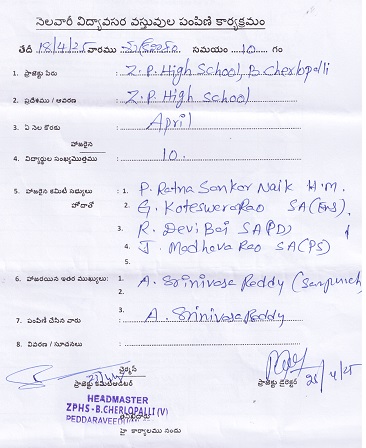 నెలవారీ విద్యావసర వస్తువుల పంపిణి కార్యక్రమం
తేదీ 18/4/25 వారము శుక్రవారం సమయం 10 గం
1. ప్రాజెక్టు పేరు : Z.P. High School, B.Cherlopalli
2. ప్రదేశము / ఆవరణ : Z.P. High School
3. ఏ నెల కొరకు : April
హాజరైన
4. విద్యార్థుల సంఖ్య/మొత్తము : 10.
5. హాజరైన కమిటీ సభ్యులు : 1. P. Ratna Sankar Naik H.M.
హోదాతో 2. G. Koteswara Rao SA(Eng).
3. R. Devi Bai SA(PD)
4. J. Madhava Rao SA(PS)
5.
6. హాజరయిన ఇతర ముఖ్యులు: 1. A. Srinivasa Reddy (Sarpunch)
2.
3.
7. పంపిణీ చేసిన వారు : A. Srinivasa Reddy
8. వివరణ / సూచనలు :
చైర్మన్
ప్రాజెక్టు కమిటీ ప్రాజెక్టు డైరెక్టర్
HEADMASTER
ZPHS-B.CHERLOPALLI (V)
హై కార్యాలము నందు